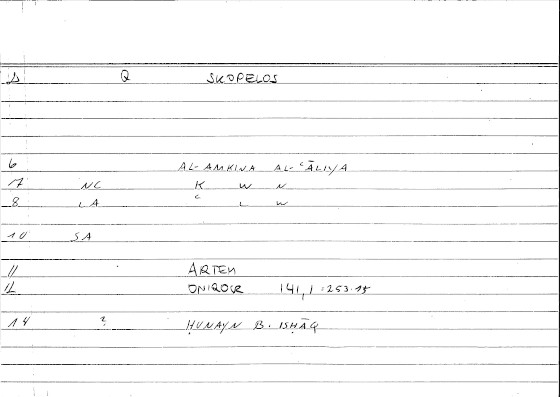 Q SKOPELOS
6 AL-AMKINA AL-ʿĀLIYA
7 NC K W N
8 LA ʿ L W
10 SA
11 ARTEM
12 ONIROCR 141,1 = 253.15
14 ? ḤUNAYN B. ISḤĀQ